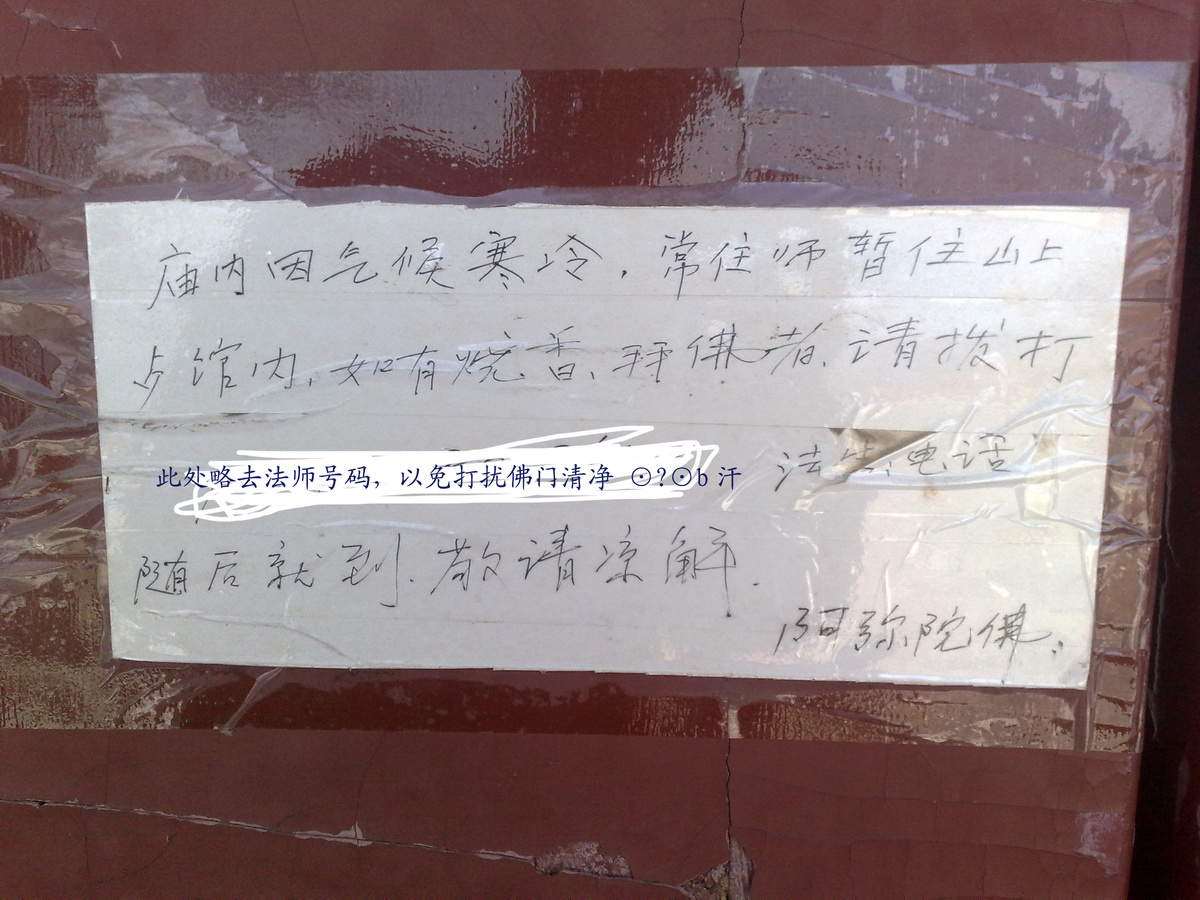 庙内因气候寒冷,常住师暂住山上
馆内,如有烧香、拜佛者,请拨打
此处略去法师号码，以免打扰佛门清净 ⊙?⊙b 汗 法 电话
随后就到.敬请凉解.
阿弥陀佛.